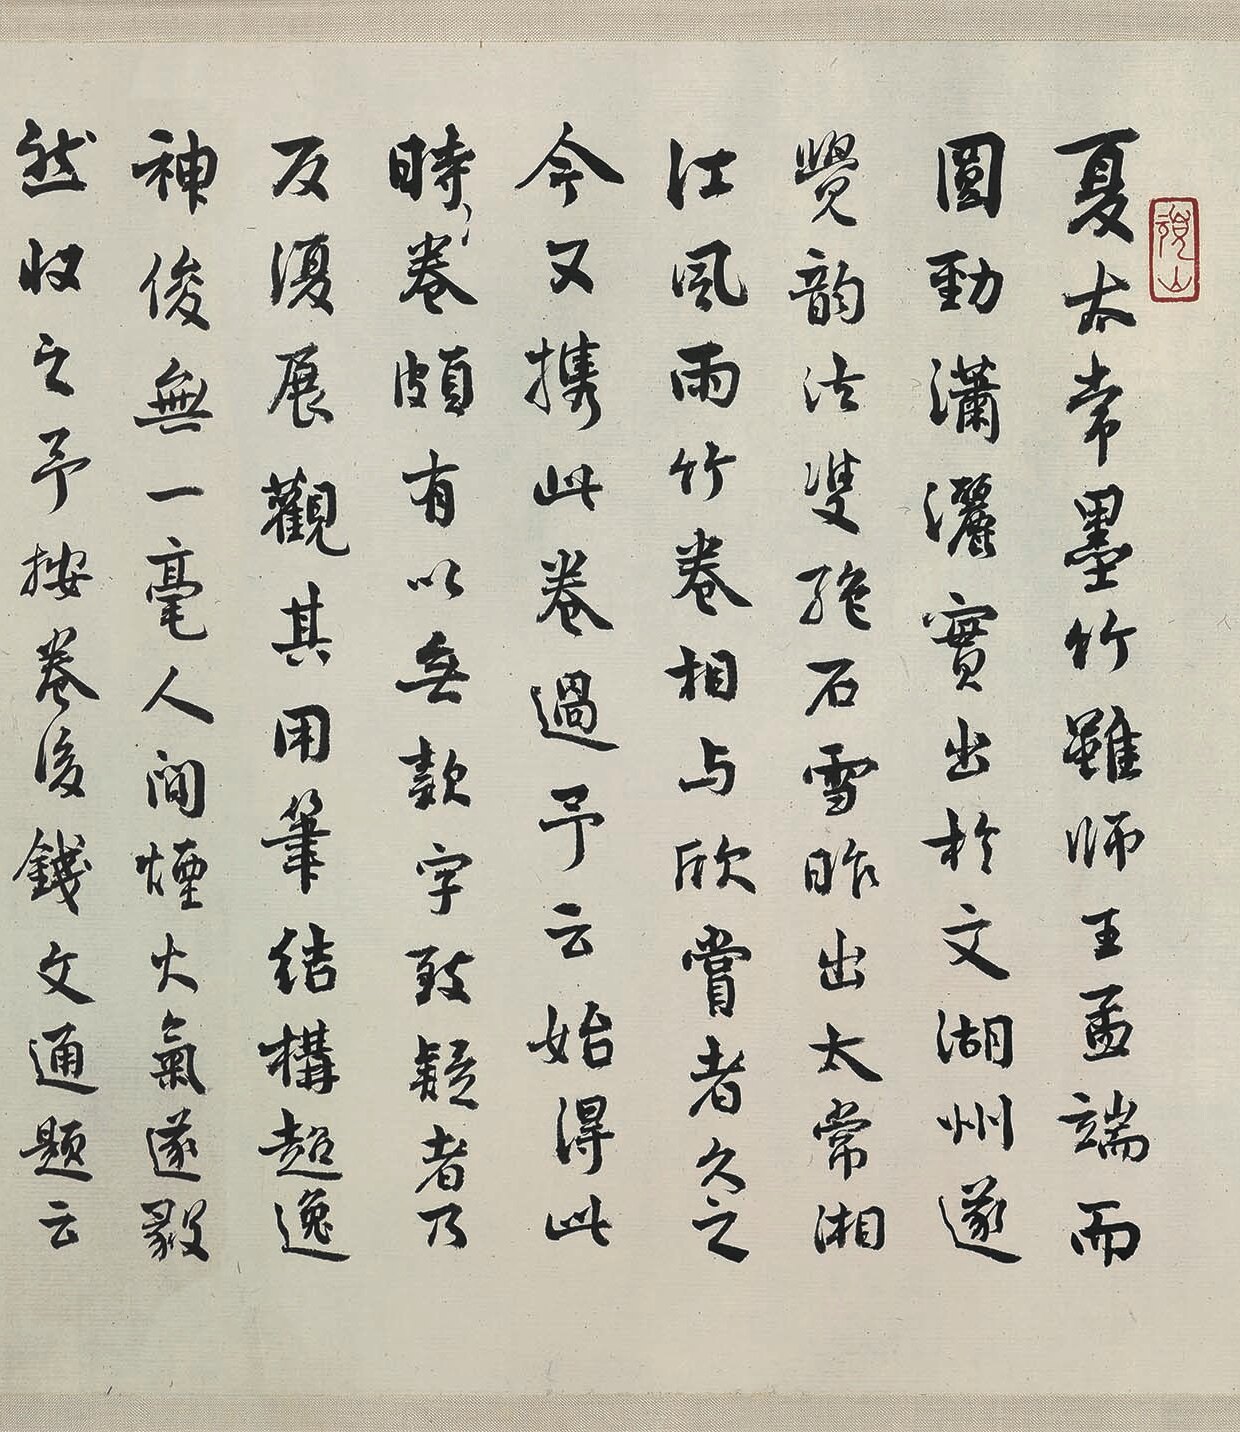 夏太常墨竹雖師王孟端而
圓勁瀟灑實出於文湖州遂
覺韵法雙絕石雪昨出太常湘
江風雨竹卷相與欣賞者久之
今又攜此卷過予云始得此
時卷頗有以無款字致疑者乃
反復展觀其用筆結構超逸
神俊無一毫人間煙火氣遂毅
然收之予按卷後錢文通題云